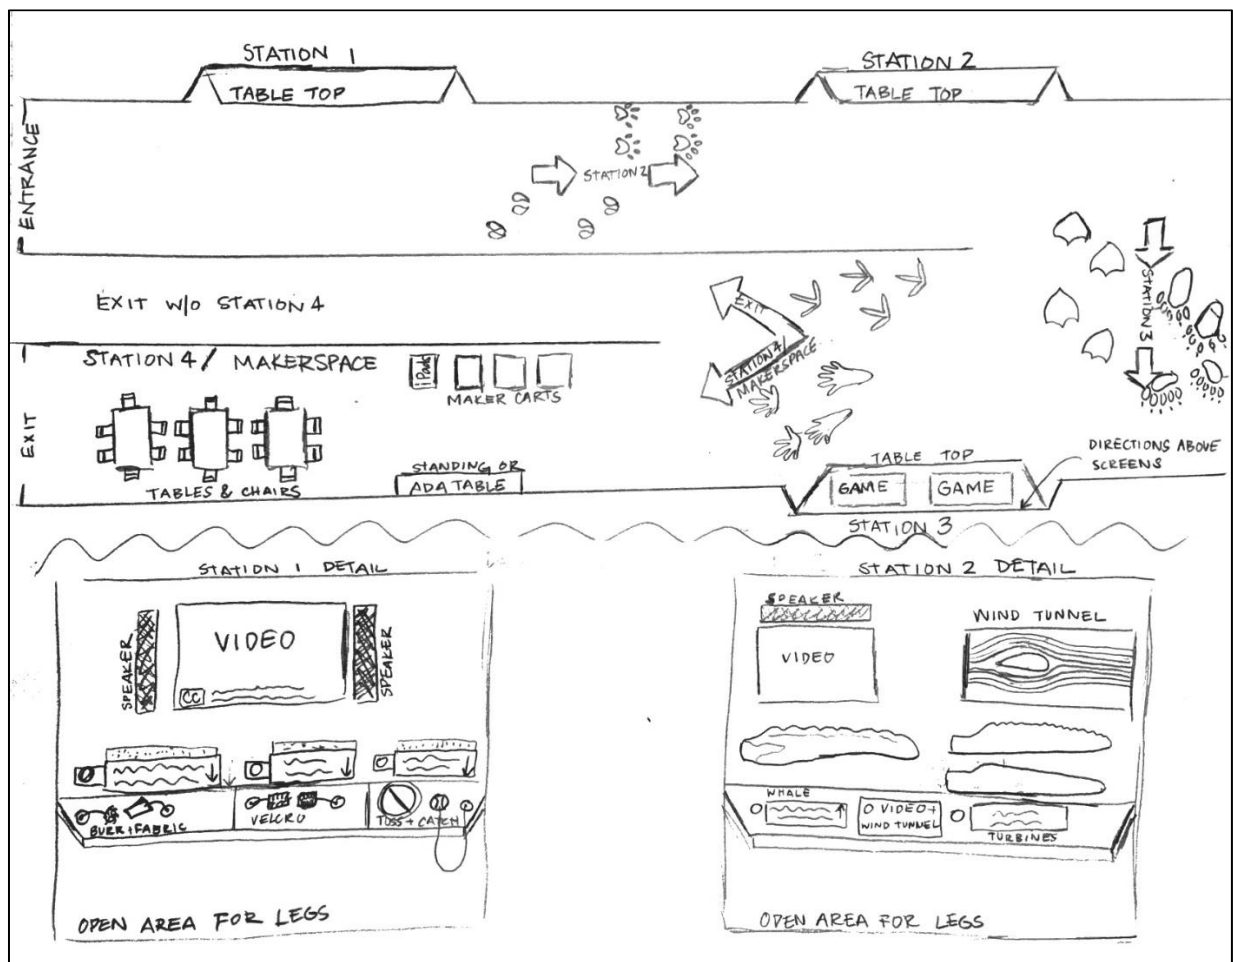 STATION 1
TABLE TOP
STATION 2
TABLE TOP
ENTRANCE
STATION 2
STATION 3
EXIT W/O STATION 4
EXIT
STATION 4/
MAKERSPACE
STATION 4/ MAKERSPACE
iPads
MAKER CARTS
EXIT
TABLES & CHAIRS
STANDING OR
ADA TABLE
TABLE TOP
GAME
GAME
STATION 3
DIRECTIONS ABOVE
SCREENS
STATION 1 DETAIL
SPEAKER
VIDEO
CC
SPEAKER
BURR + FABRIC
VELCRO
TOSS + CATCH
OPEN AREA FOR LEGS
STATION 2 DETAIL
SPEAKER
VIDEO
WIND TUNNEL
WHALE
VIDEO +
WIND TUNNEL
TURBINES
OPEN AREA FOR LEGS